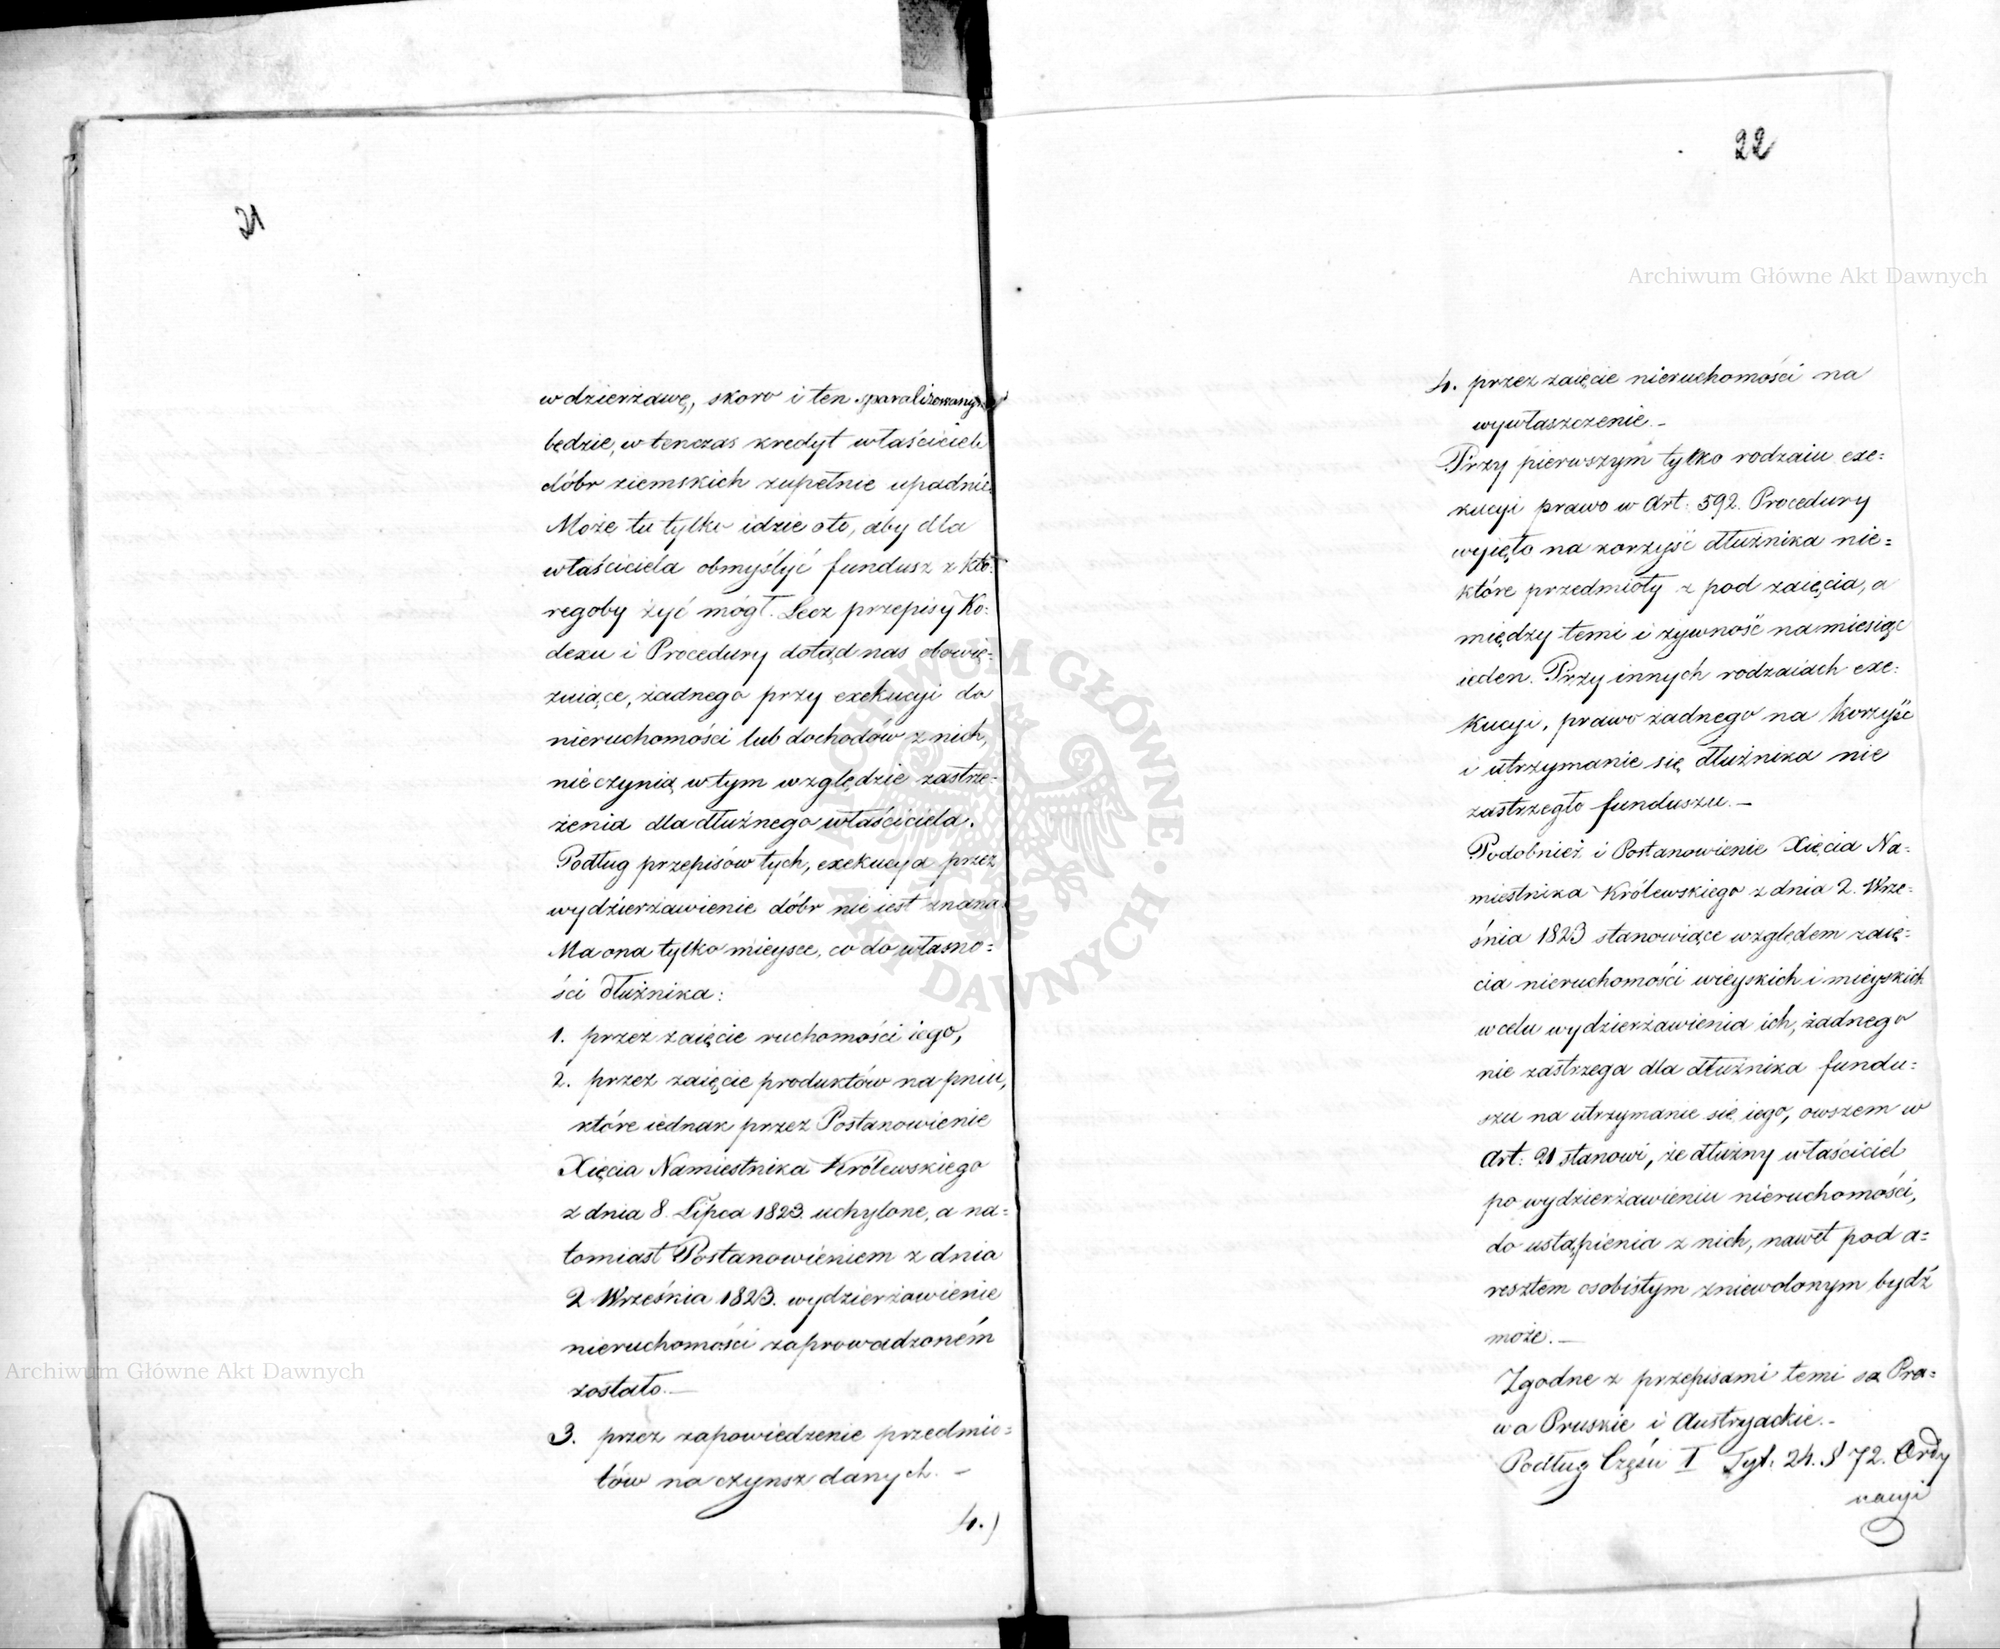 21
w dzierżawę, skoro i ten sparaliżowanym
będzie, w tenczas kredyt właściciela
dóbr ziemskich zupełnie upadnie.
Może tu tylko idzie oto, aby dla
właściciela obmyślić fundusz z któ:
regoby żyć mógł. Lecz przepisy Ko:
dexu i Procedury dotąd nas obowią:
zuiące, żadnego przy exekucyi do
nieruchomości lub dochodów z nich,
nie czynią w tym względzie zastrze:
żenia dla dłużnego właściciela.
Podług przepisów tych, exekucya przez
wydzierżawienie dóbr nie iest znana
Ma ona tylko mieysce, co do własno=
ści dłużnika:
1. przez zaięcie ruchomości iego,
2. przez zaięcie produktów na pniu,
które iednak przez Postanowienie
Xięcia Namiestnika Królewskiego
z dnia 8. Lipca 1823. uchylone, a na=
tomiast Postanowieniem z dnia
2 Września 1823. wydzierżawienie
nieruchomości zaprowadzoném
zostało.—
3. przez zapowiedzenie przedmio=
tów na czynsz danych. —
4.)
22
4. przez zaięcie nieruchomości na
wywłaszczenie.—
Przy pierwszym tylko rodzaiu exe:
kucyi prawo w Art: 592. Procedury
wyięło na korzyść dłużnika nie=
które przedmioty z pod zaięcia, a
między temi i żywność na miesiąc
ieden. Przy innych rodzaiach exe:
kucyi, prawo żadnego na korzyść
i utrzymanie się dłużnika nie
zastrzegło funduszu.—
Podobnież i Postanowienie Xięcia Na=
miestnika Królewskiego z dnia 2. Wrze=
śnia 1823 stanowiące względem zaię=
cia nieruchomości wieyskich i mieyskich
w celu wydzierżawienia ich, żadnego
nie zastrzega dla dłużnika fundu=
szu na utrzymanie się iego, owszem w
Art: 21 stanowi, że dłużny właściciel
po wydzierżawieniu nieruchomości,
do ustąpienia z nich, nawet pod a=
resztem osobistym zniewolonym bydź
może.—
Zgodne z przepisami temi są Pra=
wa Pruskie i Austryackie.—
Podług Części I Tyt: 24. § 72. Ordy
nacyi
Archiwum Główne Akt Dawnych
Archiwum Główne Akt Dawnych
ARCHIWUM GŁÓWNE AKT DAWNYCH